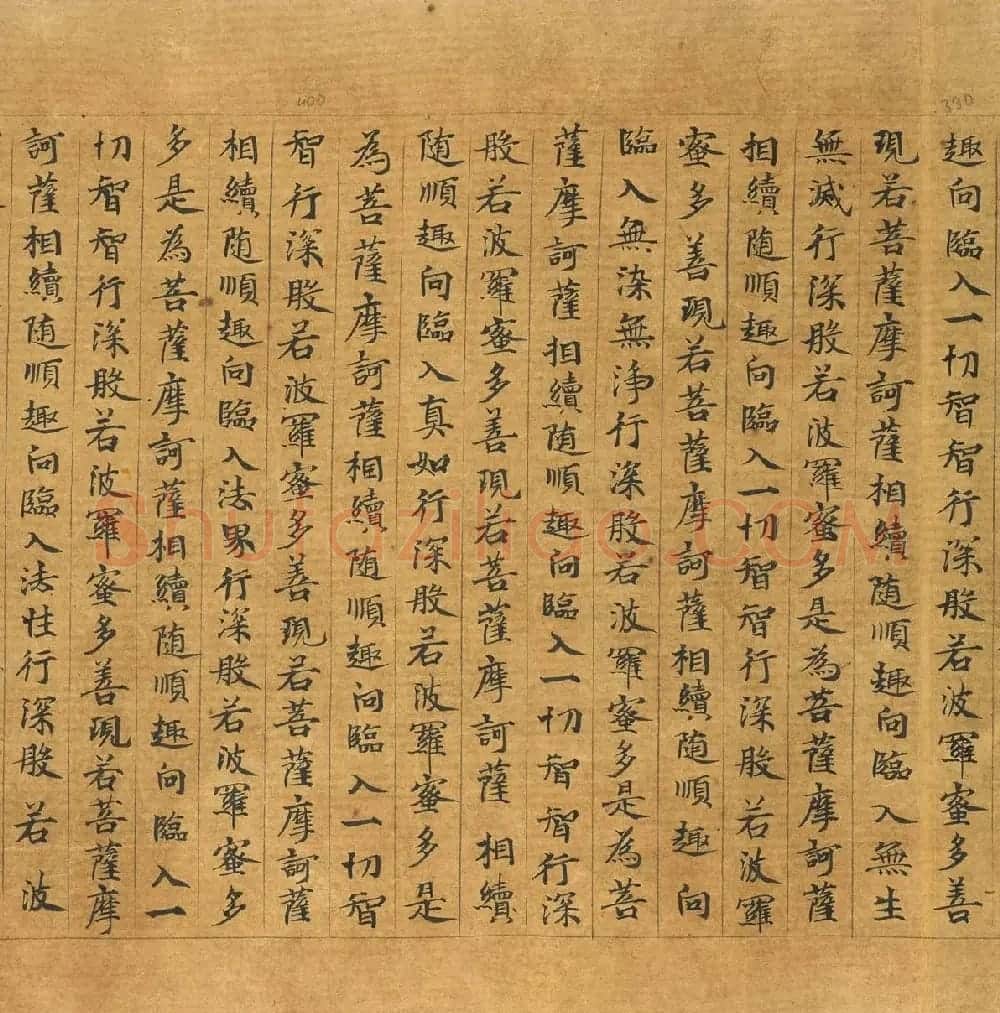 390
400
趣向臨入一切智智行深般若波羅蜜多善
現若菩薩摩訶薩相續随順趣向臨入無生
無滅行深般若波羅蜜多是為菩薩摩訶薩
相續随順趣向臨入一切智智行深般若波羅
蜜多善現若菩薩摩訶薩相續随順趣向
臨入無染無淨行深般若波羅蜜多是為菩
薩摩訶薩相續随順趣向臨入一切智智行深
般若波羅蜜多善現若菩薩摩訶薩相續
随順趣向臨入真如行深般若波羅蜜多是
為菩薩摩訶薩相續随順趣向臨入一切智
智行深般若波羅蜜多善現若菩薩摩訶薩
相續随順趣向臨入法界行深般若波羅蜜多
多是為菩薩摩訶薩相續随順趣向臨入一
切智智行深般若波羅蜜多善現若菩薩摩
訶薩相續随順趣向臨入法性行深般若波
shufaziliao.COM